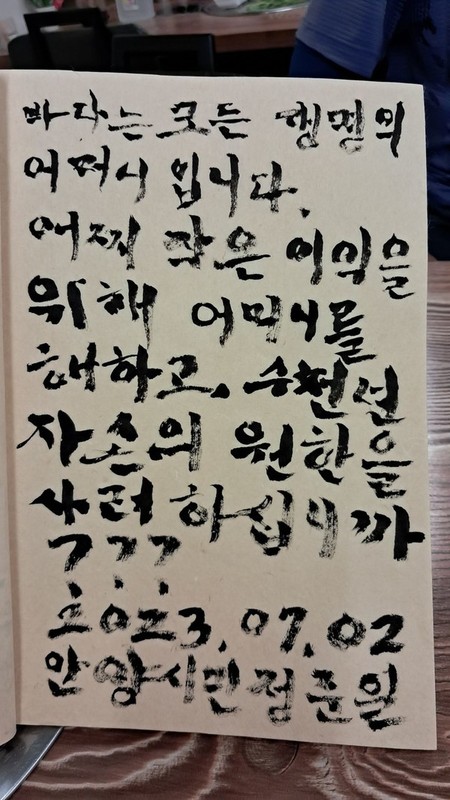 바다는 모든 생명의
어머니 입니다.
어찌 작은 이익을
위해 어머니를
해하고, 수천년
자손의 원한을
사려 하십니까
???
2023. 07. 02
안양시민 정준일